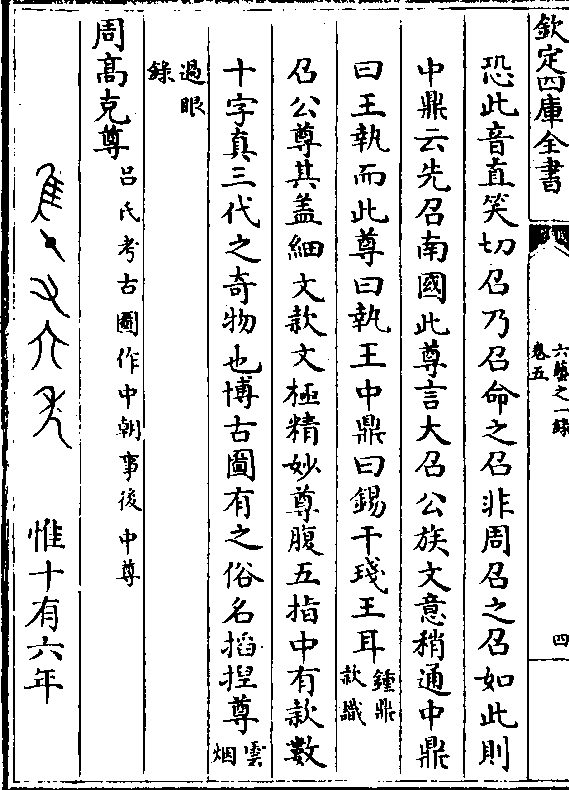 欽定四庫全書
六藝之一録
卷五
四
恐此音直笑切召乃召命之召非周召之召如此則
中鼎云先召南國此尊言大召公族文意稍通中鼎
曰王執而此尊曰執王中鼎曰錫干琖王耳鍾鼎款識
召公尊其盖細文款文極精妙尊腹五指中有款數
十字真三代之竒物也博古圖有之俗名搯揑尊雲烟
過眼録
周高克尊吕氏考古圖作中朝事後中尊
惟十有六年